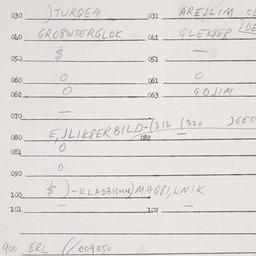 030 )TURDEM 031 AREJLIM
040 GROBWSERGLOK 041 GLEKPER
050 $ 051 —
060 O 061 O
062 O 063 GOJIM
070 —
080 E,JLIKPERBILD-(212 (320 082 —
081 O
090 O
100 $ )-KLADBIS MAGPI,LNIK
101 — 102 —
900 ERL (/009050